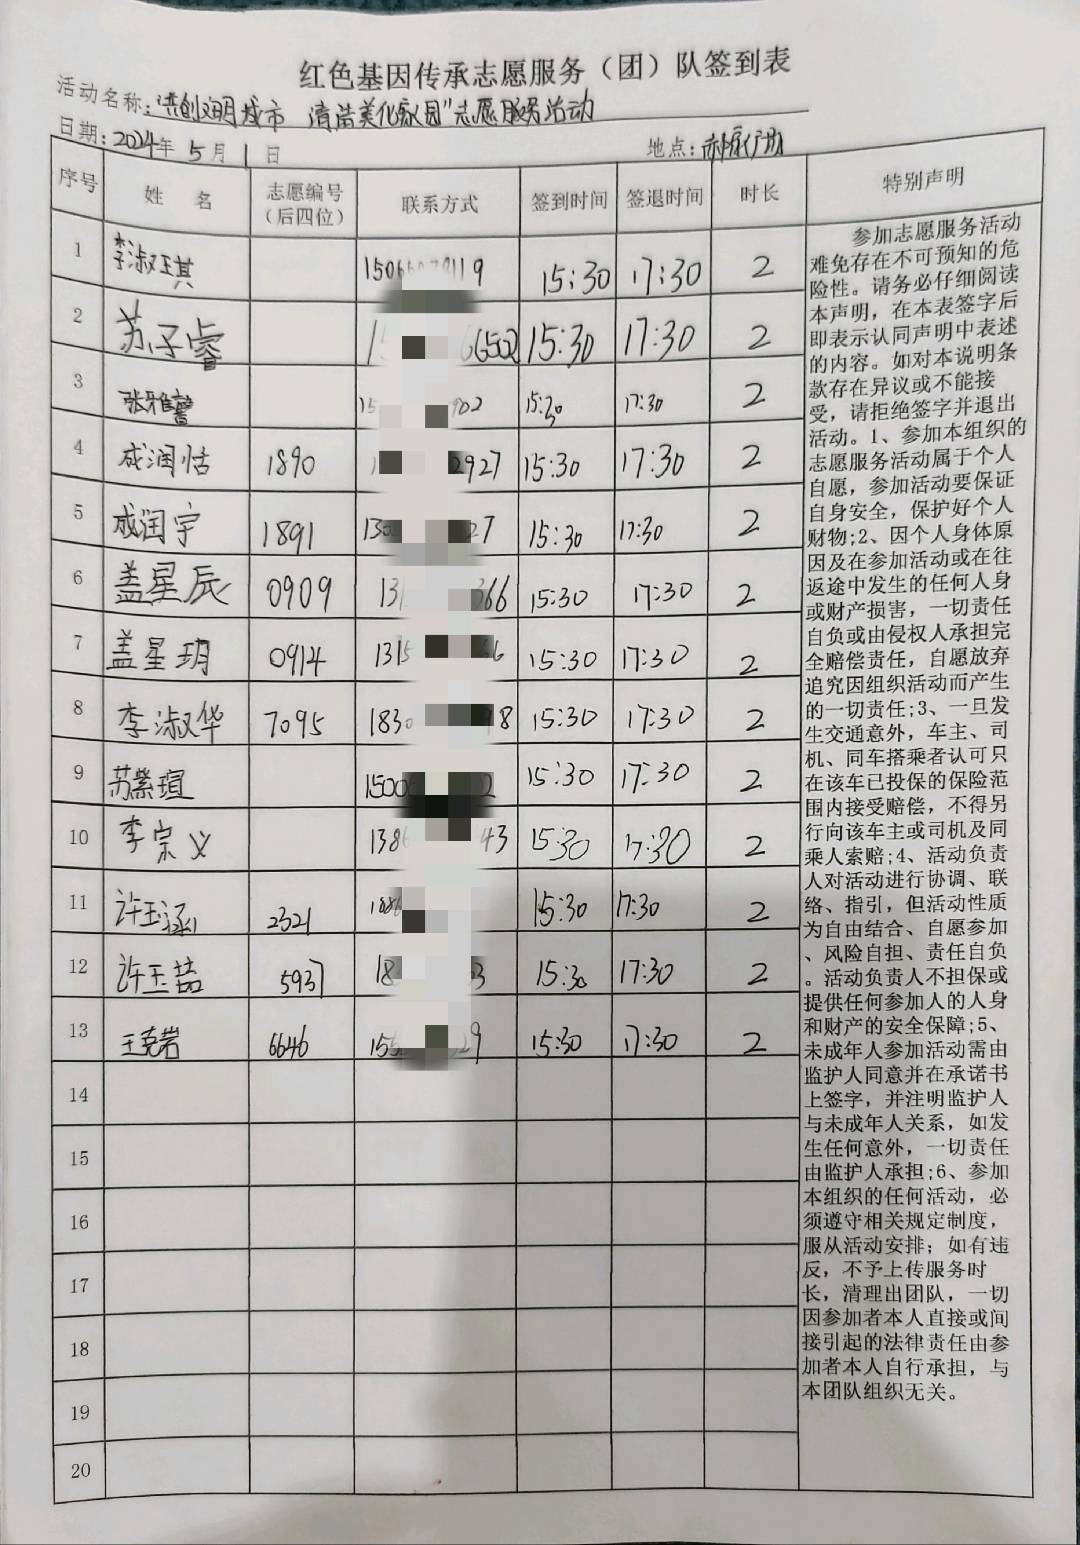 红色基因传承志愿服务（团）队签到表
活动名称：“共创文明城市 清洁美化家园”志愿服务活动
日期：2024年5月1日 地点：
序号 姓 名 志愿编号（后四位） 联系方式 签到时间 签退时间 时长 特别声明
1 李淑琪 15:30 17:30 2
2 苏子睿 15:30 17:30 2
3 张雅馨 15:30 17:30 2
4 成润恬 1890 2927 15:30 17:30 2
5 成润宇 1891 130 27 15:30 17:30 2
6 盖星辰 0909 131 366 15:30 17:30 2
7 盖星玥 0914 1315 66 15:30 17:30 2
8 李淑华 7095 1830 98 15:30 17:30 2
9 苏紫瑄 1500 2 15:30 17:30 2
10 李宗义 1386 43 15:30 17:30 2
11 许玉涵 2321 186 15:30 17:30 2
12 许玉喆 5937 18 03 15:30 17:30 2
13 王克岩 6646 155 29 15:30 17:30 2
14
15
16
17
18
19
20
参加志愿服务活动
难免存在不可预知的危
险性。请务必仔细阅读
本声明，在本表签字后
即表示认同声明中表述
的内容。如对本说明条
款存在异议或不能接
受，请拒绝签字并退出
活动。1、参加本组织的
志愿服务活动属于个人
自愿，参加活动要保证
自身安全，保护好个人
财物;2、因个人身体原
因及在参加活动或在往
返途中发生的任何人身
或财产损害，一切责任
自负或由侵权人承担完
全赔偿责任，自愿放弃
追究因组织活动而产生
的一切责任;3、一旦发
生交通意外，车主、司
机、同车搭乘者认可只
在该车已投保的保险范
围内接受赔偿，不得另
行向该车主或司机及同
乘人索赔;4、活动负责
人对活动进行协调、联
络、指引，但活动性质
为自由结合、自愿参加
、风险自担、责任自负
。活动负责人不担保或
提供任何参加人的人身
和财产的安全保障;5、
未成年人参加活动需由
监护人同意并在承诺书
上签字，并注明监护人
与未成年人关系，如发
生任何意外，一切责任
由监护人承担;6、参加
本组织的任何活动，必
须遵守相关规定制度，
服从活动安排；如有违
反，不予上传服务时
长，清理出团队，一切
因参加者本人直接或间
接引起的法律责任由参
加者本人自行承担，与
本团队组织无关。